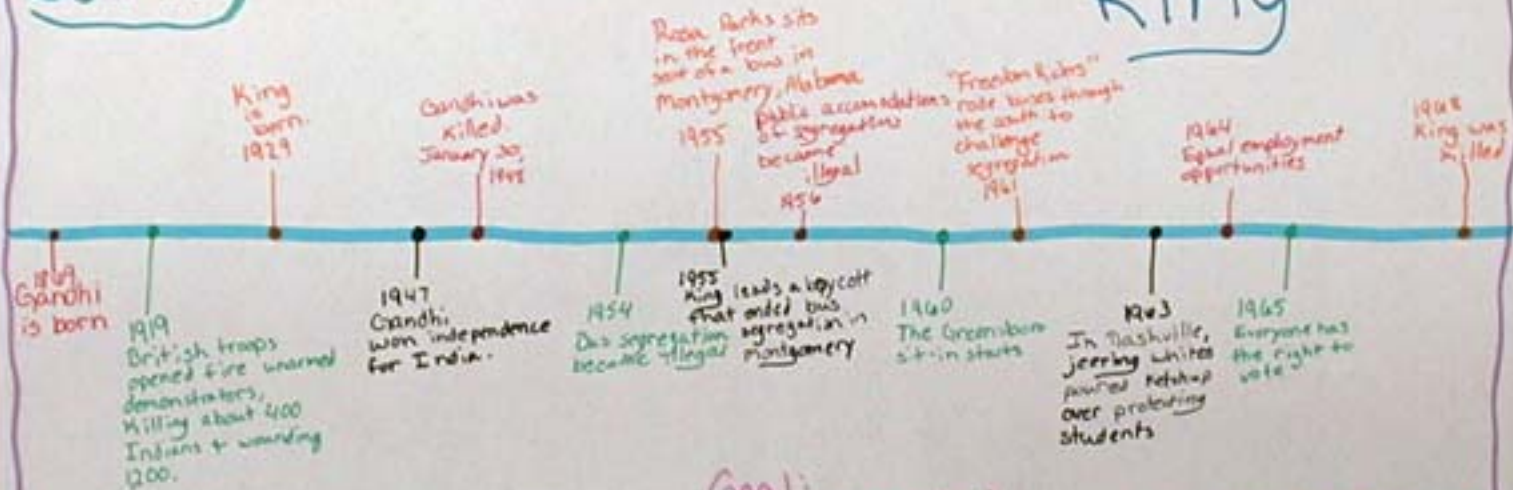 King
King
is
born.
1929
Gandhi was
killed.
January 30,
1948
Rosa Parks sits
in the front
seat of a bus in
Montgomery, Alabama
1955
public accomodations
of segregations
became
illegal
1956
"Freedom Rides"
rode buses through
the south to
challenge
segregation
1961
1964
Equal employment
opportunities
1968
King was
killed
1869
Gandhi
is born
1919
British troops
opened fire unarmed
demonstrators,
killing about 400
Indians + wounding
1200.
1947
Gandhi
won independence
for India.
1954
Bus segregation
became illegal
1955
King leads a boycott
that ended bus
segregation in
montgomery
1960
The Greensboro
sit-in starts
1963
In Nashville,
jeering whites
poured ketchup
over protesting
students
1965
Everyone has
the right to
vote